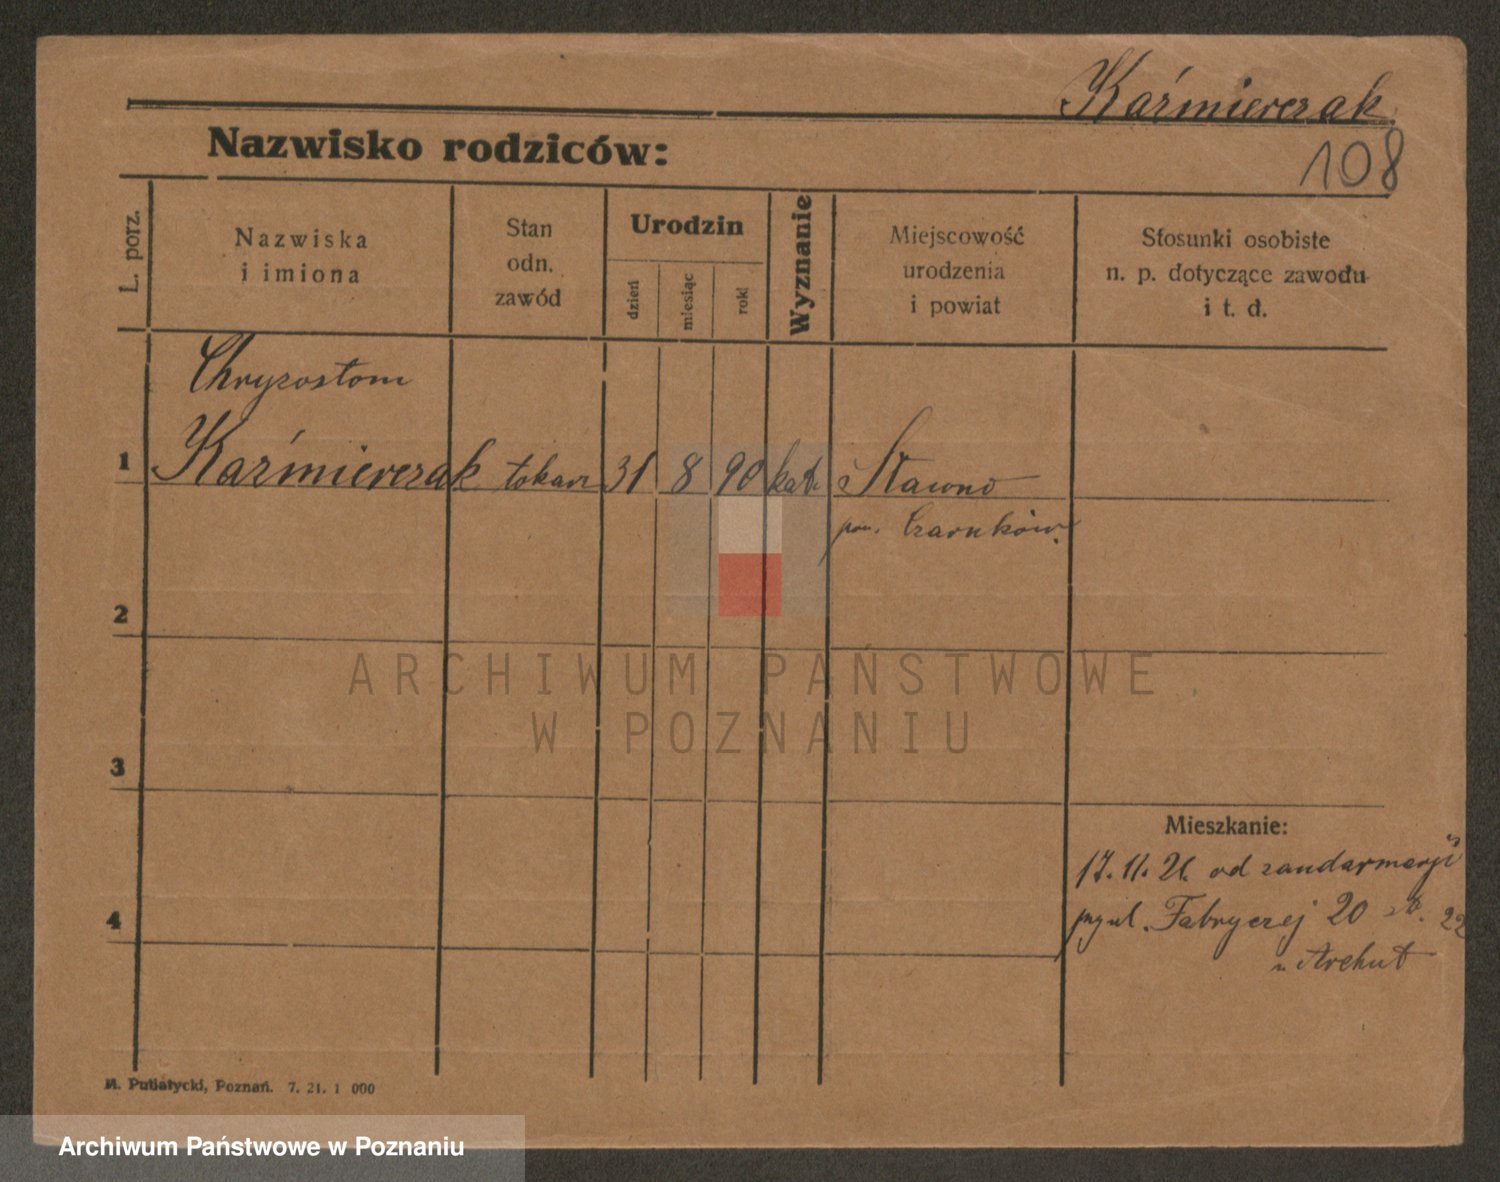 Kaźmierczak
108
Nazwisko rodziców:
L. porz.
Nazwiska
i imiona
Stan
odn.
zawód
Urodzin
dzień
miesiąc
rok
Wyznanie
Miejscowość
urodzenia
i powiat
Stosunki osobiste
n. p. dotyczące zawodu
i t. d.
Chryzostom
1 Kaźmierczak tokarz 31 8 90 kat. Stawno
pow. Czarnków.
2
ARCHIWUM PAŃSTWOWE
W POZNANIU
3
Mieszkanie:
17. 11. 21. od żandarmerji
4
przy ul. Fabrycznej 20 22
M. Putiatycki, Poznań. 7. 21. 1 000
Archiwum Państwowe w Poznaniu